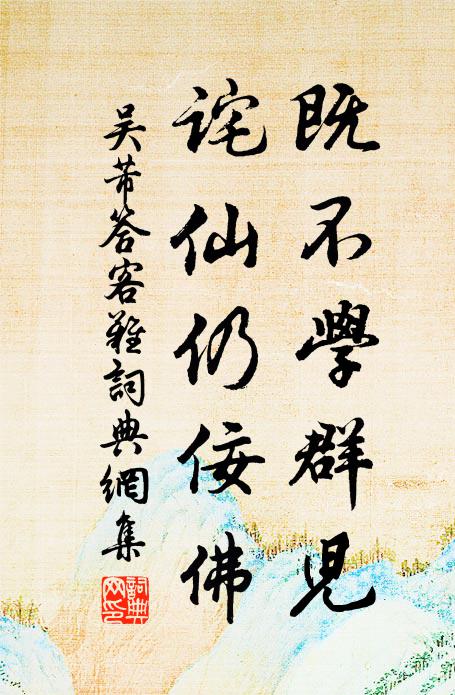 既不學群兒
詫仙仍佞佛
吴芾答客難詞典網集
詞典網印